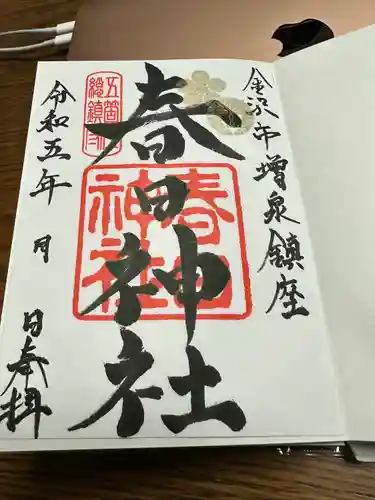 金沢市増泉鎮座
春日神社
令和五年 月 日奉拝
五箇総鎮守
春日神社